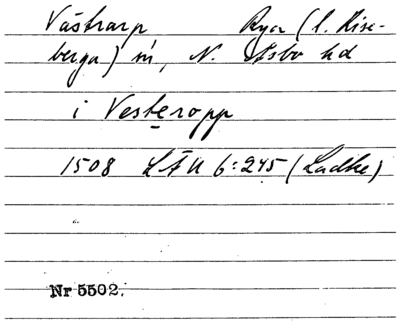 Västrarp Rya (t. Rise-
berga) sn, N. Åsbo hd
i Vesteropp
1508 LÄU 6:245 (Ladhe)
Nr 5502.